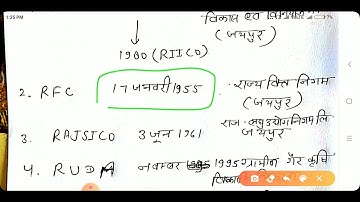 1:35 PM
विकास एवं
(जयपुर)
1980 (RIICO)
2. RFC 17 जनवरी 1955 राज्य वित्त निगम
(जयपुर)
3. RAJSICO 3 जून 1961 राज. लघु उद्योग निगम लि
जयपुर
4. RUDA नवम्बर 1995 ग्रामीण गैर कृषि
विकास